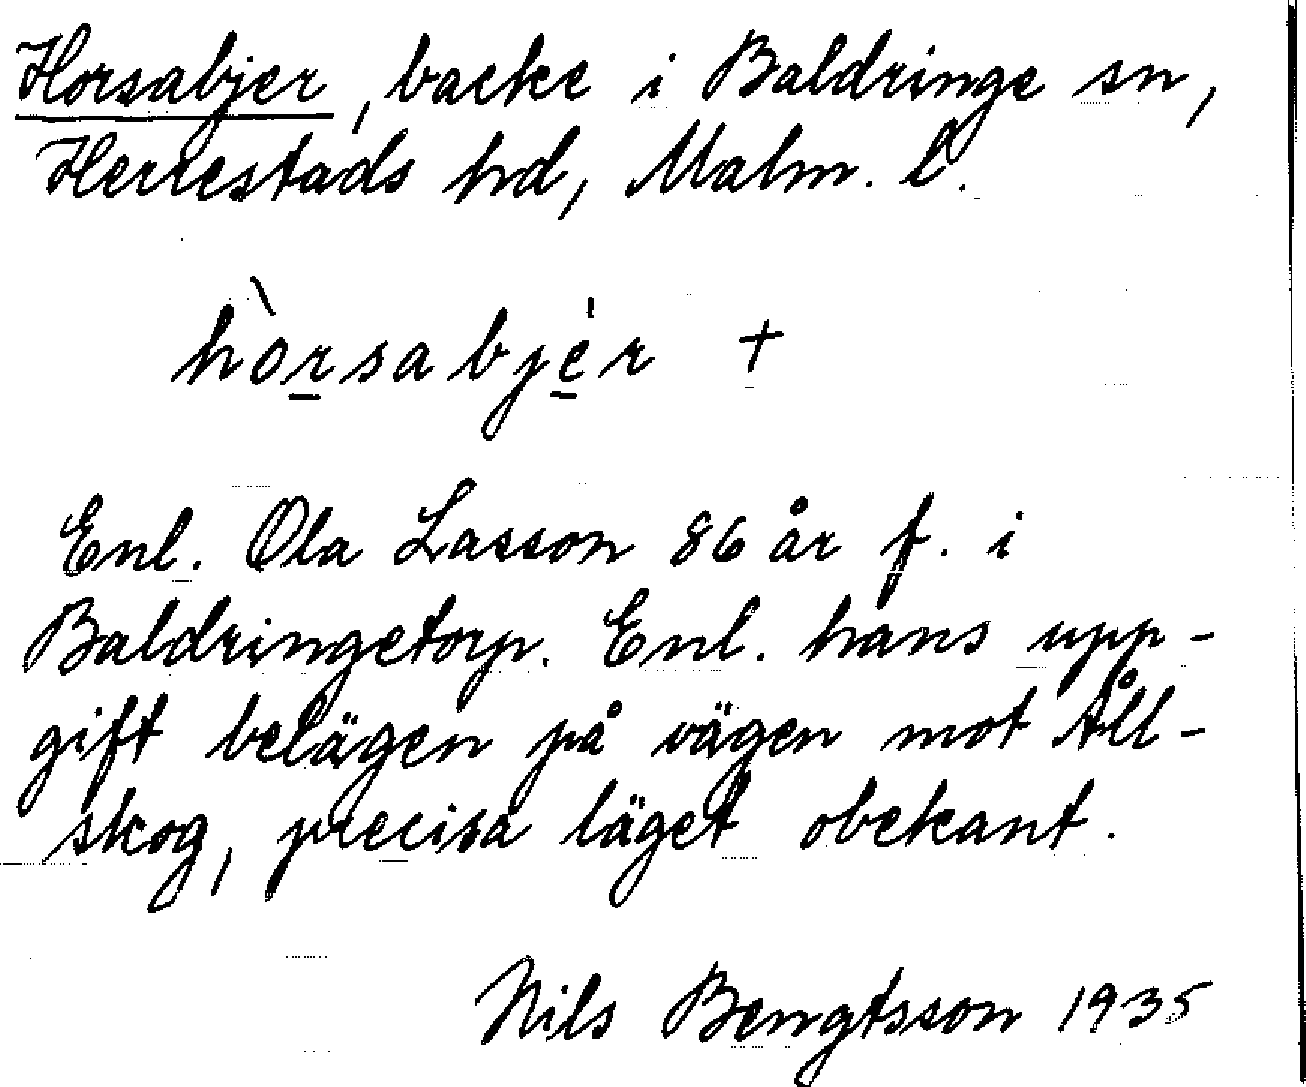 Horsabjer, backe i Baldringe sn,
Herrestads hd, Malm. l.
hòrsabjèr +
Enl. Ola Lasson 86 år f. i
Baldringetorp. Enl. hans upp-
gift belägen på vägen mot Åll-
skog, precisa läget obekant.
Nils Bengtsson 1935